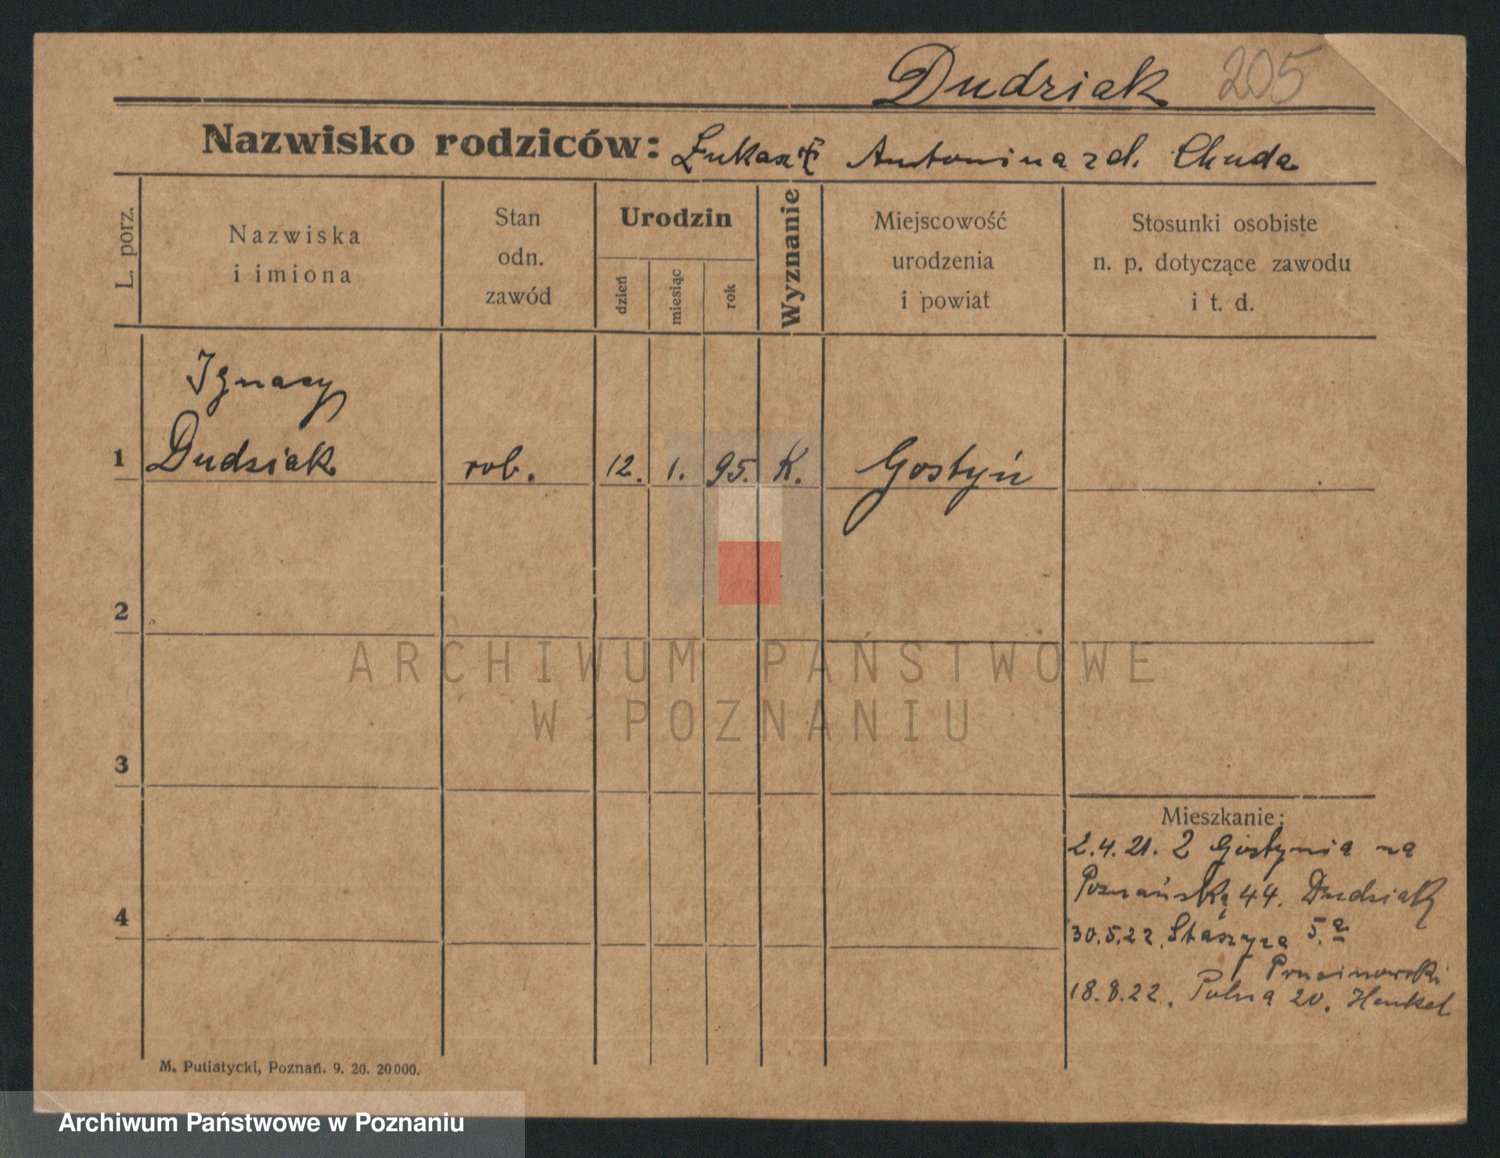 Dudziak 205
Nazwisko rodziców: Łukasz Antonina zd. Chuda
L. porz.
Nazwiska
i imiona
Stan
odn.
zawód
Urodzin
dzień
miesiąc
rok
Wyznanie
Miejscowość
urodzenia
i powiat
Stosunki osobiste
n. p. dotyczące zawodu
i t. d.
Ignacy
1 Dudziak rob. 12. 1. 95. K. Gostyń
2
3
4
Mieszkanie:
2.4.21. z Gostynia na
Poznańską 44. Dudziak
30.5.22. Staszyca 5.a
18.8.22. Polna 20. Henkel
M. Putiatycki, Poznań. 9. 20. 20000.
ARCHIWUM PAŃSTWOWE
W POZNANIU
Archiwum Państwowe w Poznaniu